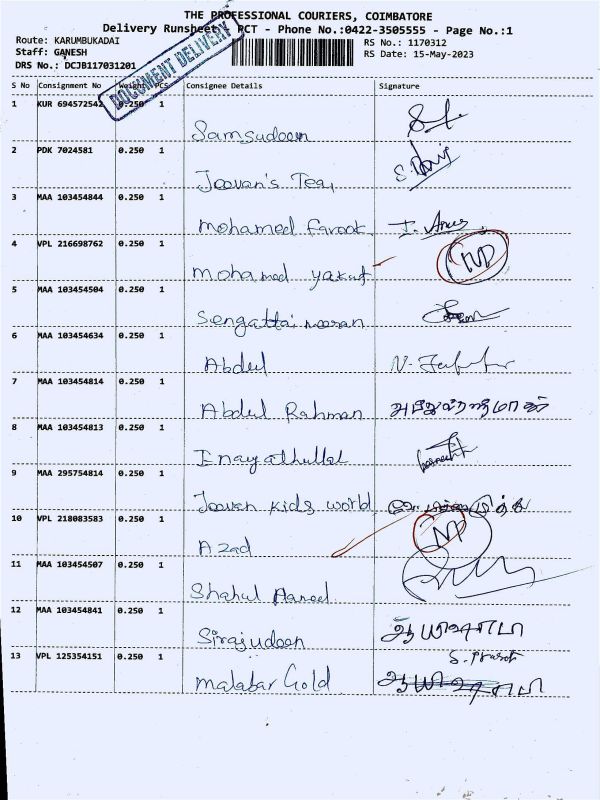 THE PROFESSIONAL COURIERS, COIMBATORE
Delivery Runsheet, PCT - Phone No.:0422-3505555 - Page No.:1
Route: KARUMBUKADAI
RS No.: 1170312
Staff: GANESH
RS Date: 15-May-2023
DRS No.: DCJB117031201
DOCUMENT DELIVERY
S No Consignment No Weight PCS Consignee Details Signature
1 KUR 694572542 0.250 1
Samsudeen
2 PDK 7024581 0.250 1
Jeevan's Tea,
3 MAA 103454844 0.250 1
Mohamed farook
4 VPL 216698762 0.250 1
Mohamed yakut
5 MAA 103454504 0.250 1
6 MAA 103454634 0.250 1
Abdul
7 MAA 103454814 0.250 1
Abdul Rahman
8 MAA 103454813 0.250 1
Inayathullal
9 MAA 295754814 0.250 1
Jeevan kids world
10 VPL 218083583 0.250 1
Azad
11 MAA 103454507 0.250 1
Shahul Hameed
12 MAA 103454841 0.250 1
Sirajudeen
13 VPL 125354151 0.250 1
Malabar Gold